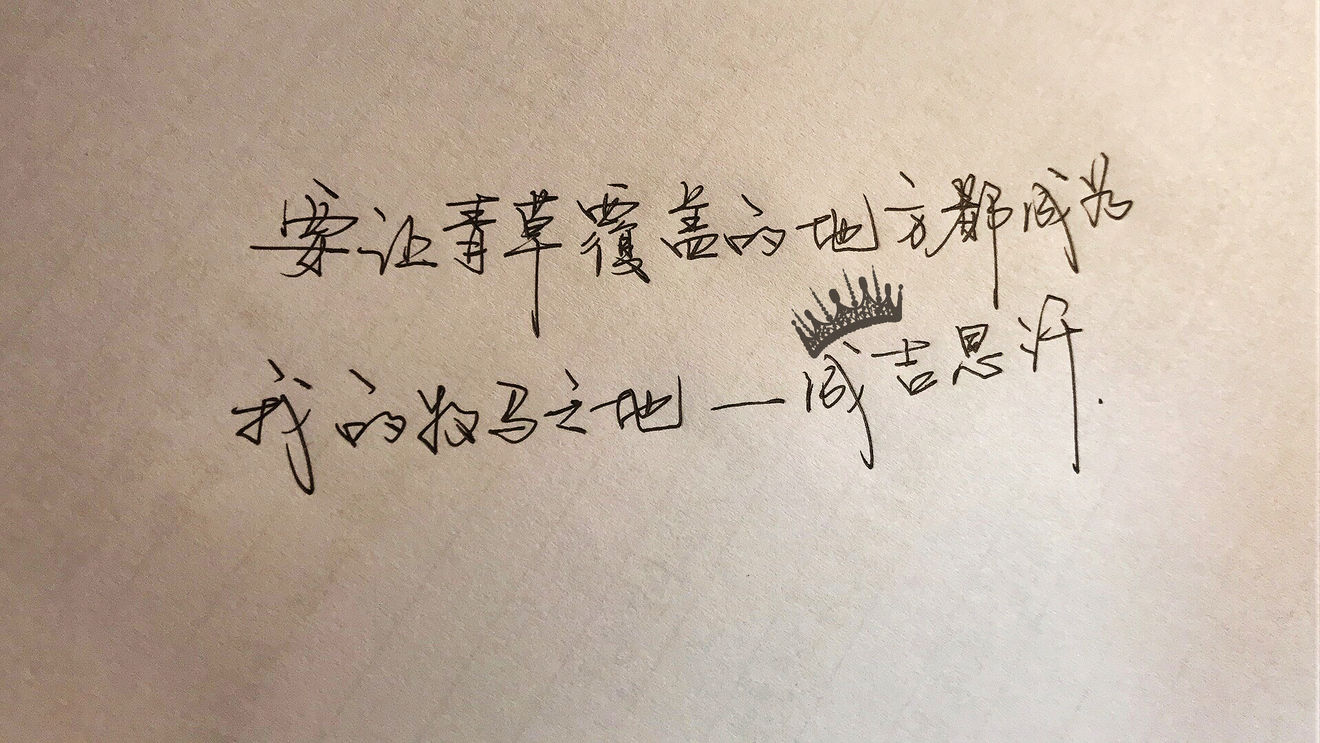 要让青草覆盖的地方都成为
我的牧马之地—成吉思汗.